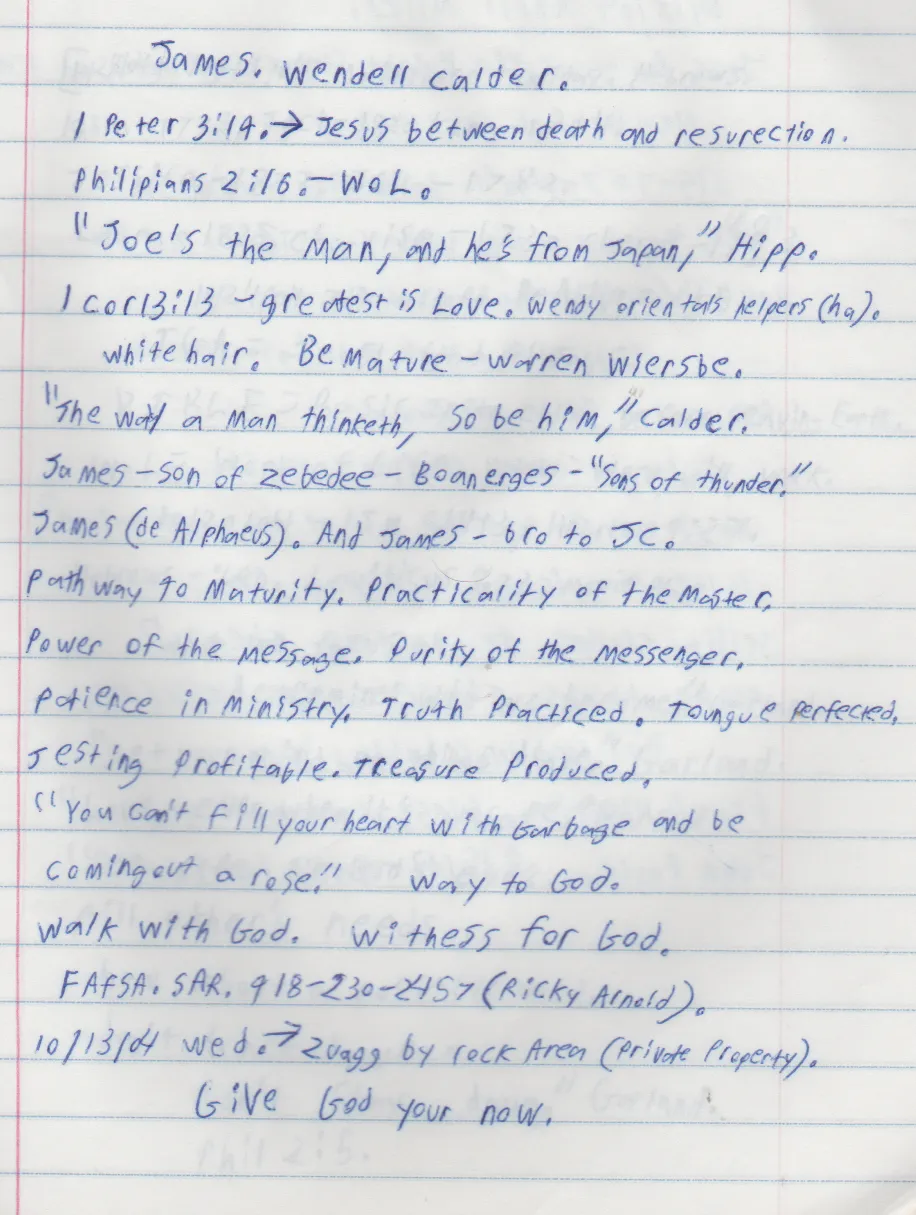 James. Wendell Calder.
1 Peter 3:19.→ Jesus between death and resurection.
Philipians 2:16.-WOL.
"Joe's the man, and he's from Japan," Hipp.
1 Cor13:13 -greatest is Love. Wendy orientals helpers (ha).
white hair. Be Mature - Warren Wiersbe.
"The way a man thinketh, so be him," Calder.
James-Son of Zebedee - Boanerges - "Sons of thunder."
James (de Alphaeus). And James - bro to JC.
Pathway to Maturity. Practicality of the Master.
Power of the message. Purity of the messenger.
Patience in Ministry. Truth Practiced. Toungue Perfected.
Testing Profitable. Treasure Produced.
"You can't fill your heart with Garbage and be
coming out a rose." Way to God.
Walk with God. Witness for God.
FAFSA. SAR. 918-230-2457 (Ricky Arnold).
10/13/04 wed.→ by rock Area (Private Property).
Give God your now.